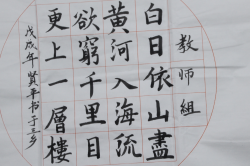 教师组
白日依山盡
黄河入海流
欲窮千里目
更上一層樓
戊戌年賢平书于三乡